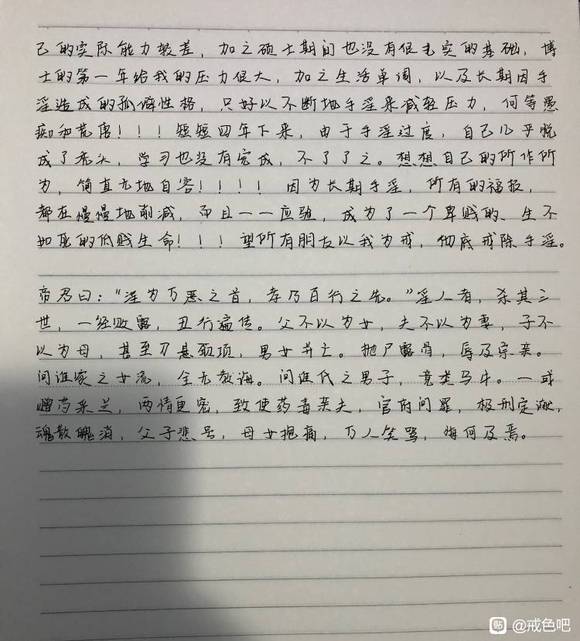 己的实际能力较差，加之硕士期间也没有很老实的基础，博
士的第一年给我的压力很大，加之生活单调，以及长期因手
淫造成的孤僻性格，只好以不断地手淫来减轻压力，何等愚
痴和荒唐！！！短短四年下来，由于手淫过度，自己几乎脱
成了秃头，学习也没有完成，不了了之。想想自己的所作所
为，简直无地自容！！！！因为长期手淫，所有的福报，
都在慢慢地削减，而且一一应验，成为了一个卑贱的、生不
如死的低贱生命！！！望所有朋友以我为戒，彻底戒除手淫。
帝君曰：“淫为万恶之首，孝乃百行之先。”淫人者，杀其三
世，一经败露，丑行遍传。父不以为女，夫不以为妻，子不
以为母，甚至刃悬颈项，男女并亡。抛尸露骨，辱及宗亲。
问谁家之女流，全无教诲。问谁氏之男子，竟类马牛。一或
赠芍采兰，两情更密，致使药毒亲夫，官府问罪，极刑定谳，
魂散魄消，父子悲号，母女抱痛，万人笑骂，悔何及焉。
贴 @戒色吧